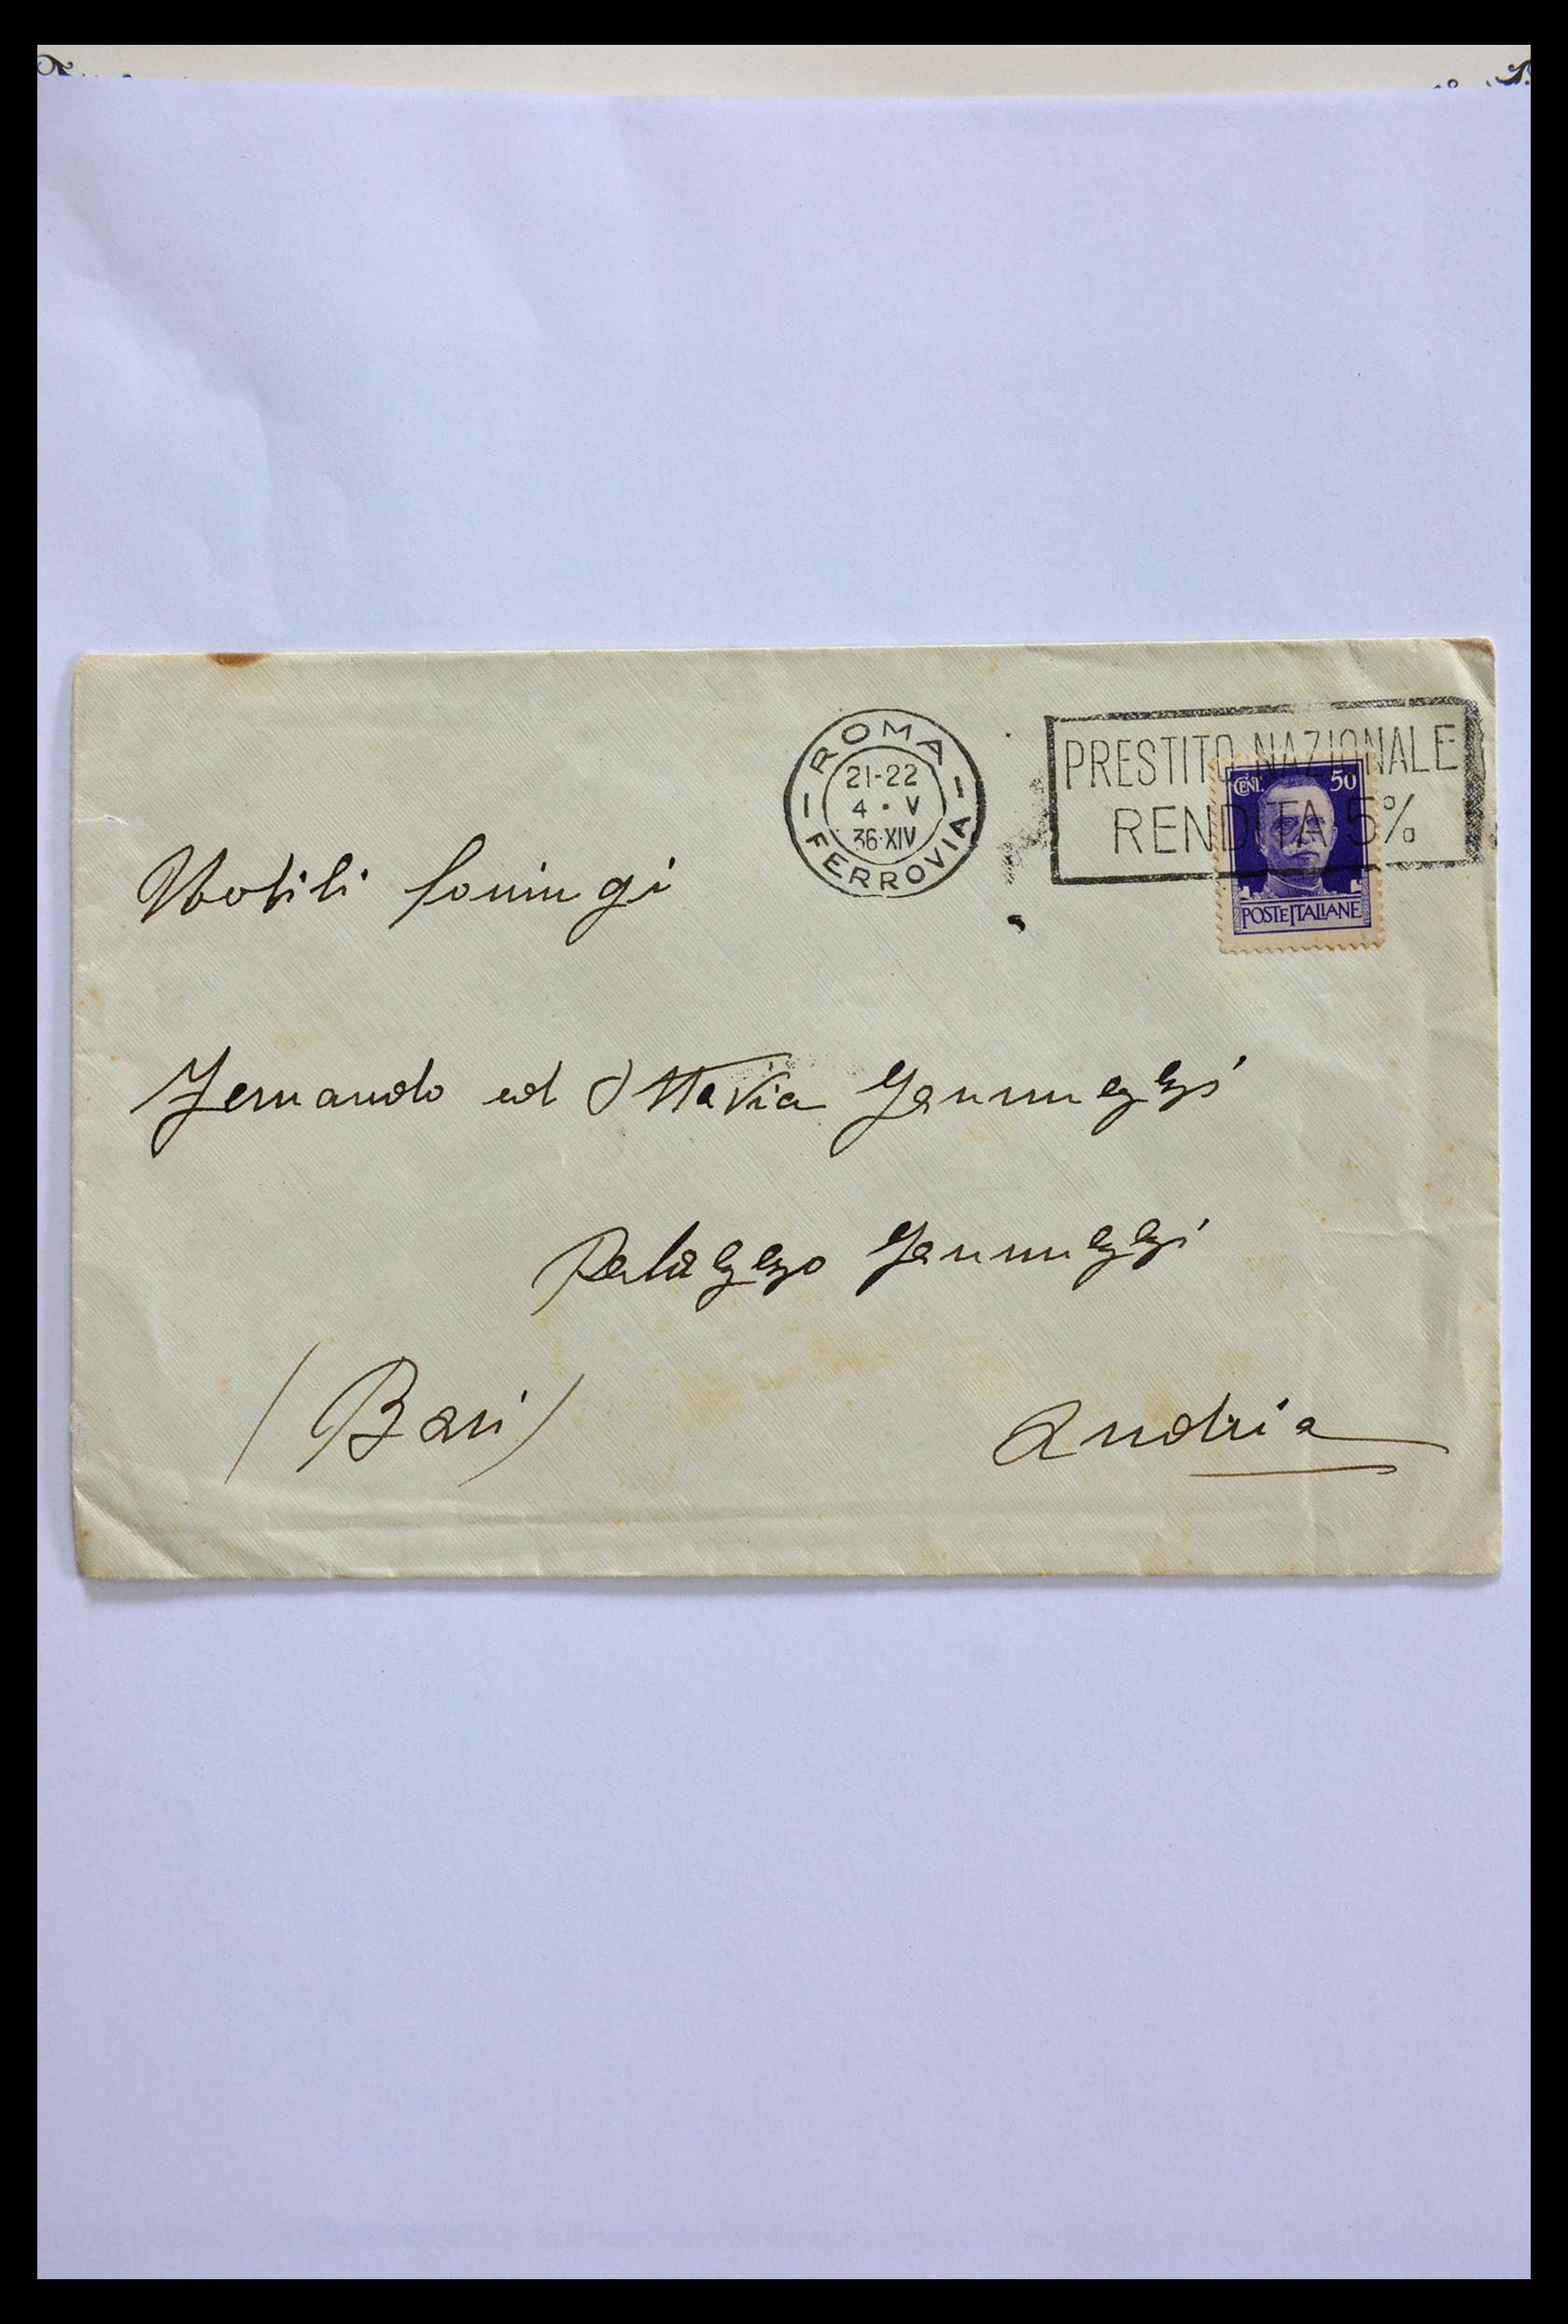 ROMA
21-22
4 • V
36•XIV
FERROVIA
PRESTITO NAZIONALE
RENDITA 5%
CENT. 50
POSTE ITALIANE
Nobili Coniugi
Fernando ed Ottavia Jannuzzi
Palazzo Jannuzzi
(Bari)
Andria